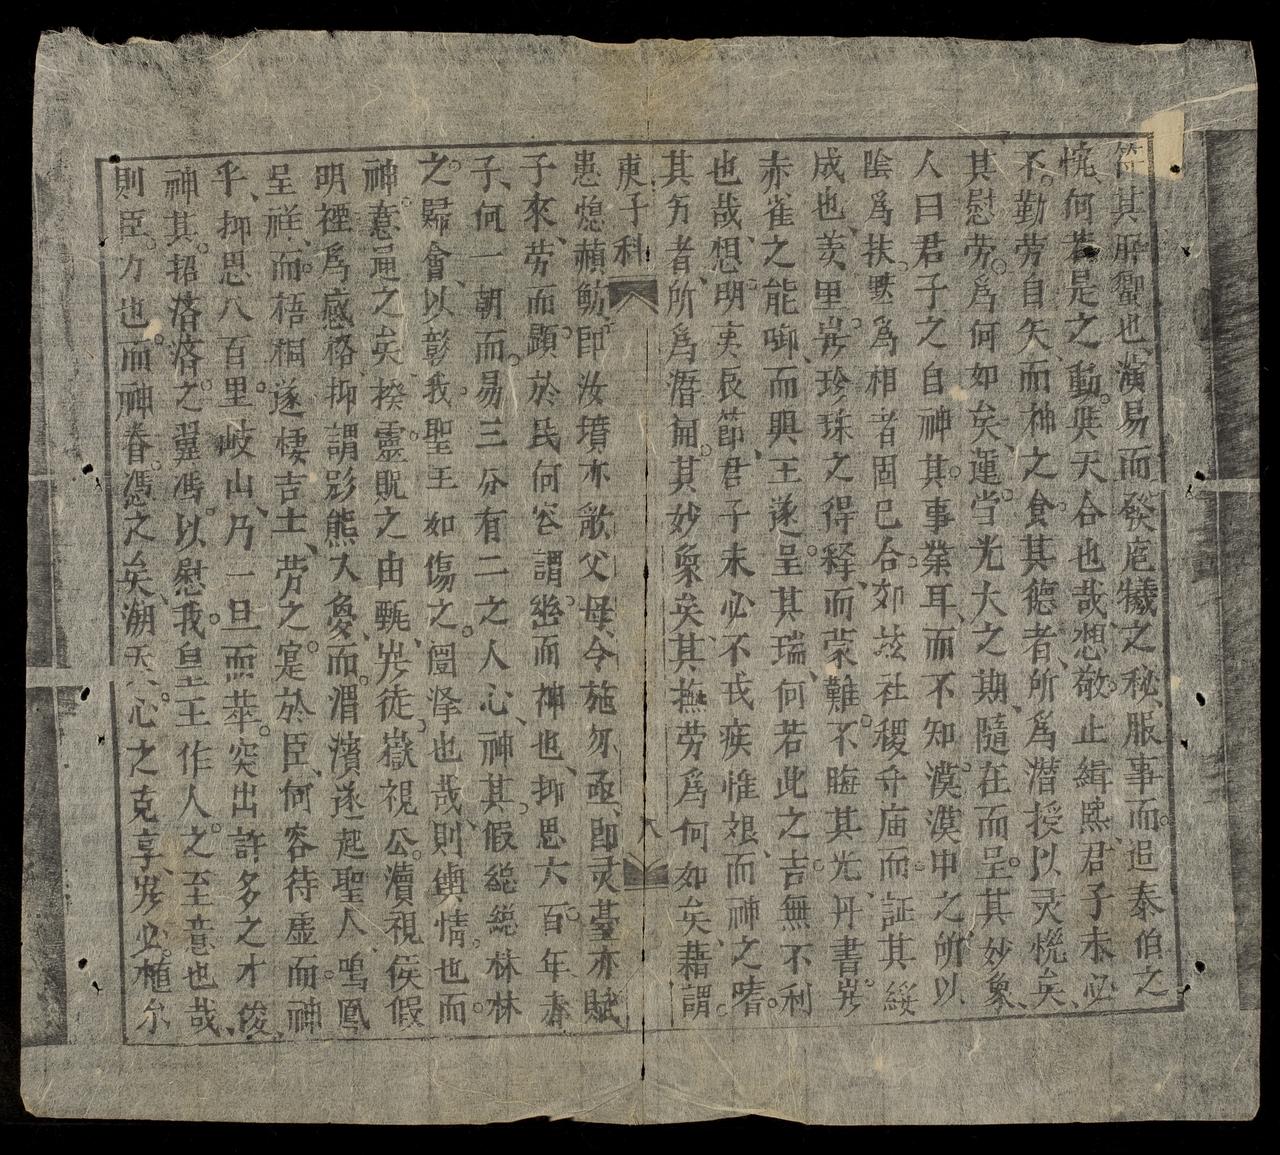 符其肵蠁也演易而發庖犧之秘、服事而追泰伯之
恍、何若是之動與天合也哉、想敬止緝熙、君子未必
不勤劳自矢、而神之食其德者、所爲潛授以灵恍矣、
其慰劳爲何如矣、運当光大之期、隨在而呈其妙象、
人曰君子之自神其事業耳、而不知漠漠中之所以
陰爲扶默爲相者固已合郊垓社稷寺庙而証其綏
成也、羑里岁珍珠之得释、而蒙難不晦其光、丹書岁
赤雀之能啣、而興王遂呈其瑞、何若此之吉無不利
也哉、想明夷辰節、君子未必不戎疾惟艰、而神之嗜
其労者、所爲潛啚其妙象矣、其撫劳爲何如矣、藉謂
庚子科 八
患熄蘋魴、即汝墳亦歌父母、令施勿亟、即灵臺亦賦
子來、劳而顕於民何容謂幽而神也、抑思六百年春
子、何一朝而易三分有二之人心、神其假総総林林
之歸會、以彰我聖王如傷之闓澤也哉、則輿情也而
神意通之矣、揆靈貺之由甄、岁徒嶽視公瀆視侯假
明禋爲感格、抑謂彭熊入夢、而渭濱遂起聖人、鳴鳳
呈祥、而梧桐遂棲吉士、劳之寔於臣、何容待虚而神
乎、抑思八百里岐山、乃一旦而萃突出許多之才俊、
神其招落落之翼馮、以慰我皇王作人之至意也哉、
則臣力也而神眷憑之矣、溯天心之克享、岁必植尓